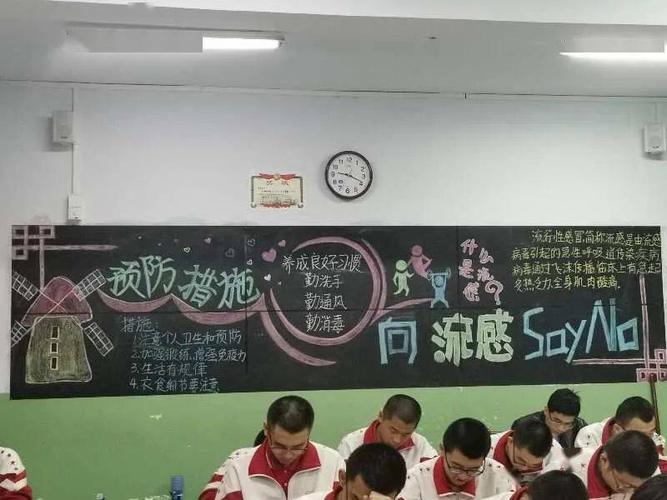 预防措施
措施:
1.注意个人卫生和预防
2.加强锻炼,增强免疫力
3.生活有规律
4.衣食细节要注意
养成良好习惯
勤洗手
勤通风
勤消毒
什么
是流
感?
流行性感冒,简称流感是由流感
病毒引起的急性呼吸道传染疾病
病毒通过飞沫传播临床上有急起
发热乏力,全身肌肉酸痛
向流感SayNo